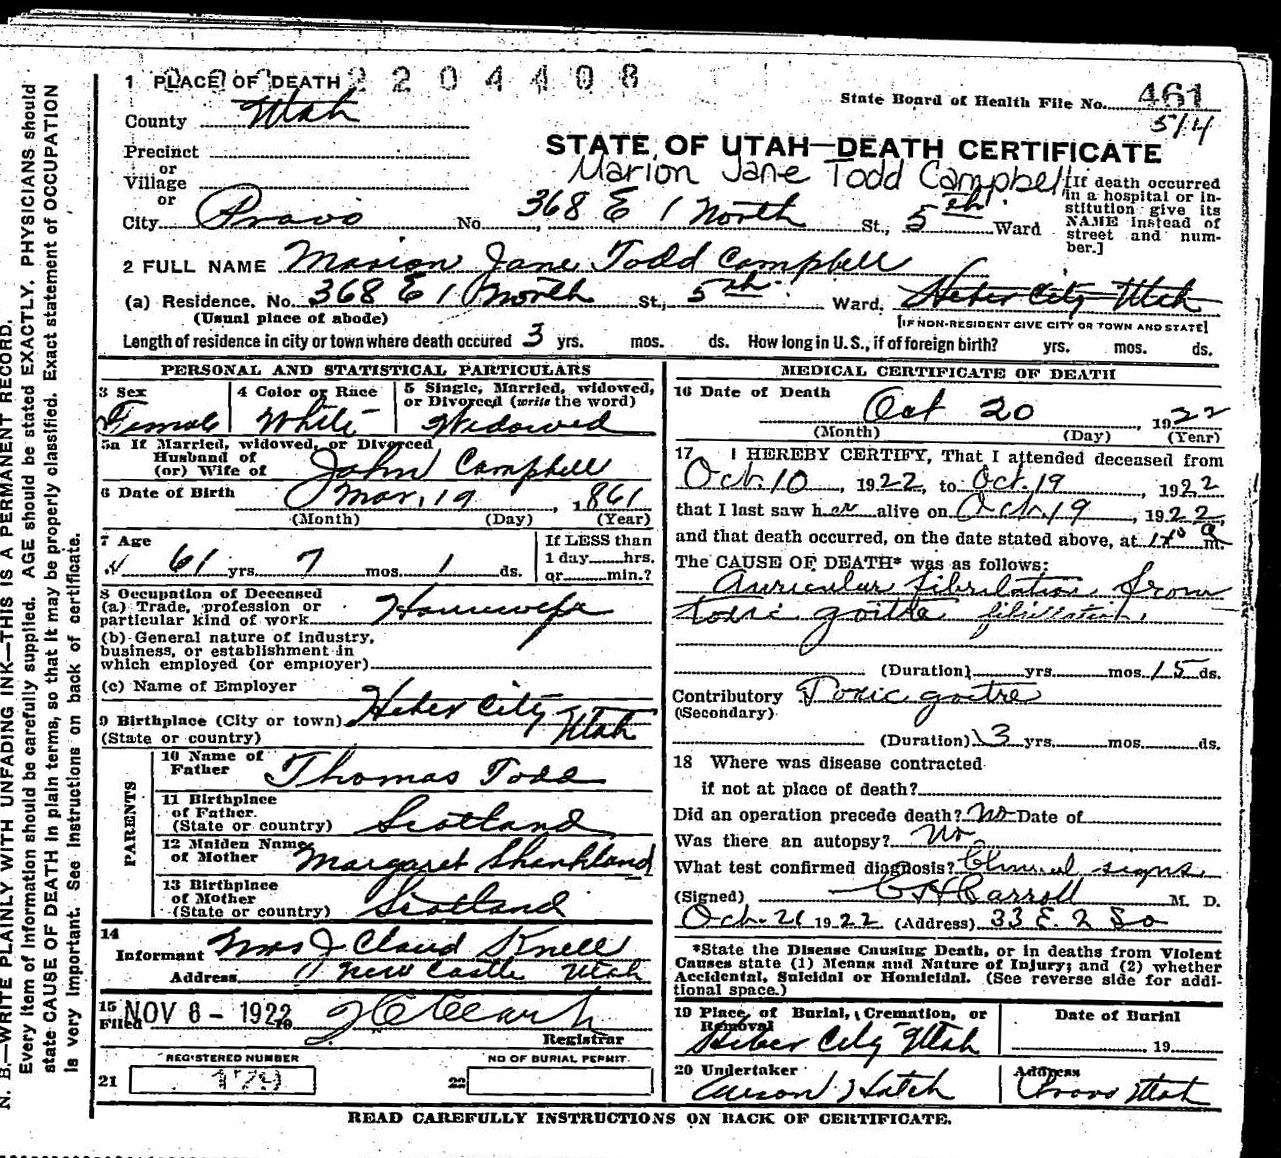 1 PLACE OF DEATH 2204408
County Utah
State Board of Health File No. 461
514
Precinct
or
Village
or
STATE OF UTAH—DEATH CERTIFICATE
Marion Jane Todd Campbell
City Provo No. 368 E 1 North St., 5th Ward
[If death occurred
in a hospital or in-
stitution give its
NAME instead of
street and num-
ber.]
2 FULL NAME Marion Jane Todd Campbell
(a) Residence. No. 368 E 1 North St., 5th Ward. Heber City Utah
(Usual place of abode)
[IF NON-RESIDENT GIVE CITY OR TOWN AND STATE]
Length of residence in city or town where death occured 3 yrs. mos. ds. How long in U.S., if of foreign birth? yrs. mos. ds.
PERSONAL AND STATISTICAL PARTICULARS
3 Sex
Female
4 Color or Race
White
5 Single, Married, widowed,
or Divorced (write the word)
Widowed
5a If Married, widowed, or Divorced
Husband of
(or) Wife of John Campbell
6 Date of Birth Mar. 19, 1861
(Month) (Day) (Year)
7 Age
61 yrs. 7 mos. 1 ds.
If LESS than
1 day hrs.
or min.?
8 Occupation of Deceased
(a) Trade, profession or
particular kind of work Housewife
(b) General nature of industry,
business, or establishment in
which employed (or employer)
(c) Name of Employer
9 Birthplace (City or town) Heber City
(State or country) Utah
PARENTS
10 Name of
Father Thomas Todd
11 Birthplace
of Father.
(State or country) Scotland
12 Maiden Name
of Mother Margaret Shankland
13 Birthplace
of Mother
(State or country) Scotland
14
Informant Mrs J Claud Knell
Address New Castle Utah
15
Filed NOV 6 - 1922 19
Registrar
REGISTERED NUMBER
NO OF BURIAL PERMIT
21
22
MEDICAL CERTIFICATE OF DEATH
16 Date of Death
Oct 20, 1922
(Month) (Day) (Year)
17 I HEREBY CERTIFY, That I attended deceased from
Oct. 10, 1922, to Oct. 19, 1922
that I last saw her alive on Oct. 19, 1922,
and that death occurred, on the date stated above, at m.
The CAUSE OF DEATH* was as follows:
Auricular fibrilation from
toxic goitre fibrillation.
(Duration) yrs. mos. 15 ds.
Contributory Toxic goitre
(Secondary)
(Duration) 3 yrs. mos. ds.
18 Where was disease contracted
if not at place of death?
Did an operation precede death? No Date of
Was there an autopsy? No
What test confirmed diagnosis? Clinical signs
(Signed) Carroll M. D.
Oct. 21 1922 (Address) 33 E. 2 So
*State the Disease Causing Death, or in deaths from Violent
Causes state (1) Means and Nature of Injury; and (2) whether
Accidental, Suicidal or Homicidal. (See reverse side for addi-
tional space.)
19 Place of Burial, Cremation, or
Removal
Heber City Utah
Date of Burial
19
20 Undertaker
Hatch
Address
Provo Utah
READ CAREFULLY INSTRUCTIONS ON BACK OF CERTIFICATE.
N. B.—WRITE PLAINLY WITH UNFADING INK—THIS IS A PERMANENT RECORD.
Every item of information should be carefully supplied. AGE should be stated EXACTLY. PHYSICIANS should
state CAUSE OF DEATH in plain terms, so that it may be properly classified. Exact statement of OCCUPATION
is very important. See Instructions on back of certificate.